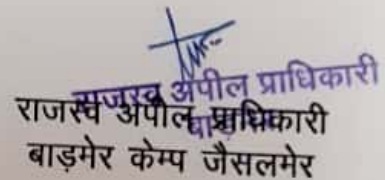 राजस्व अपील प्राधिकारी
राजस्व अपील प्राधिकारी
बाड़मेर केम्प जैसलमेर